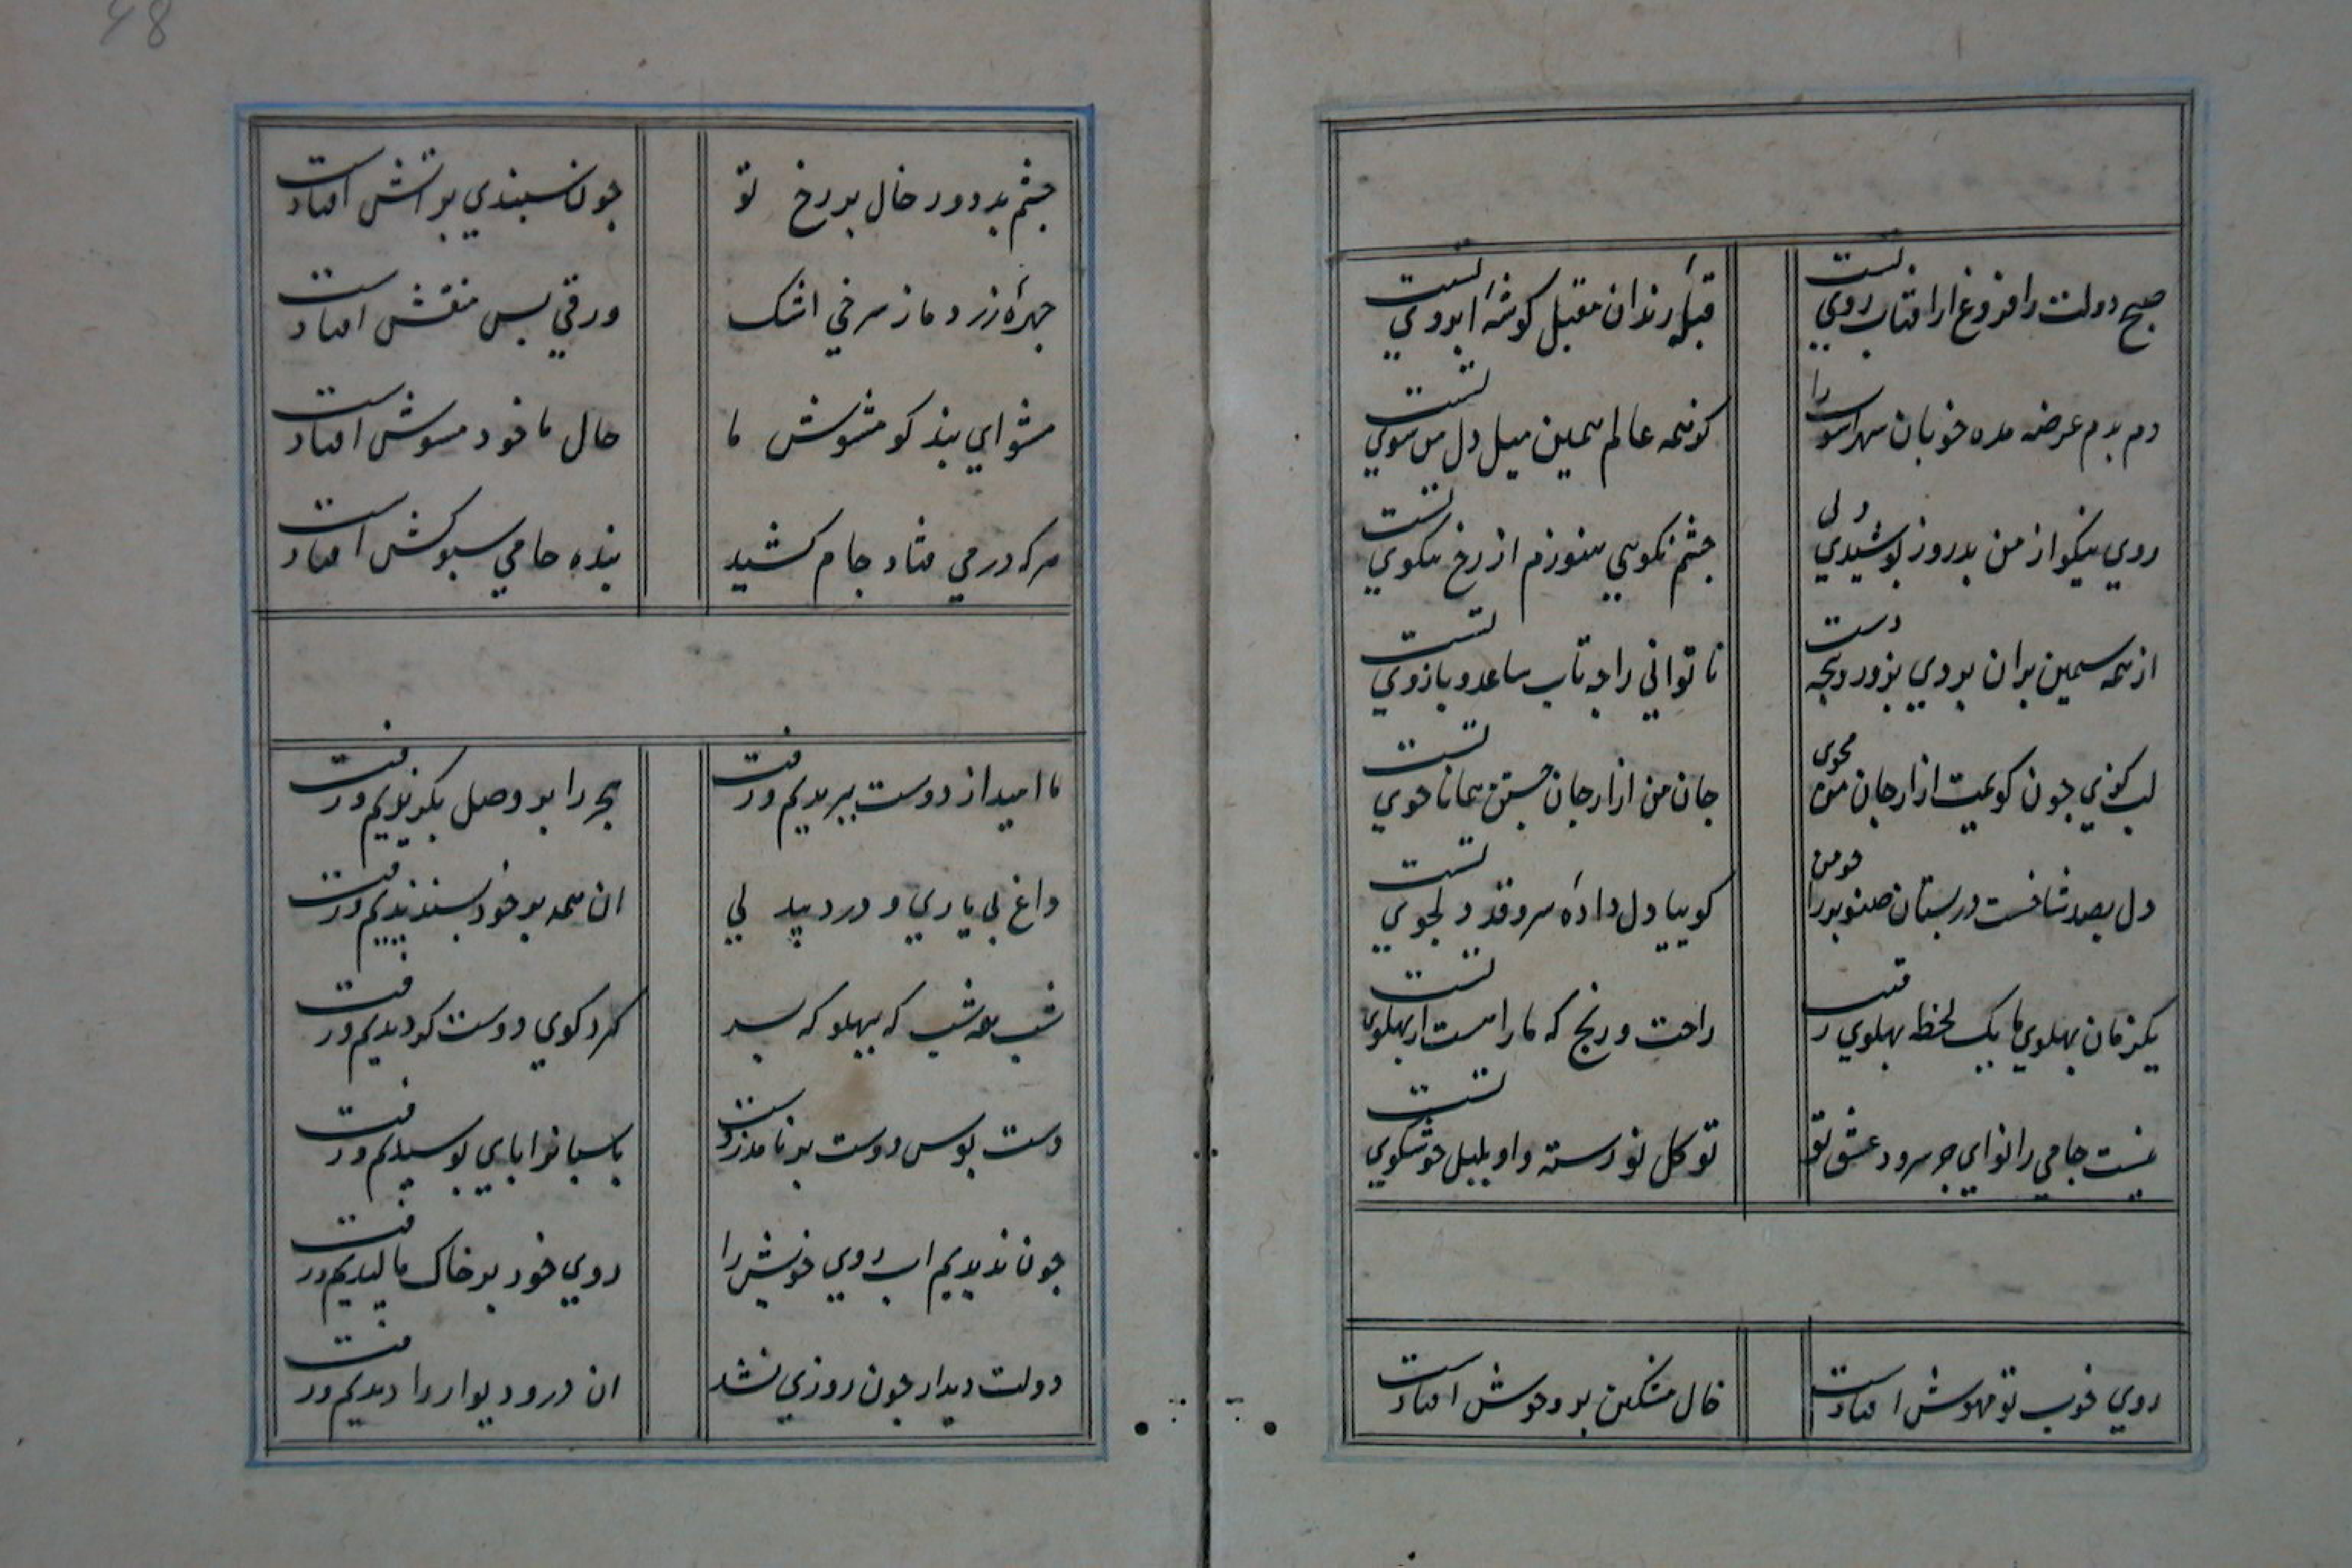 صبح دولت را فروغ از افتاب روی تست
قبلهٔ رندان مقبل کوشهٔ ابروی تست
دم بدم عرضه مده خوبان مهراسو را
کو همه عالم همین میل دل من سوی تست
روی نیکو از من بدروز پوشیدی ولی
چشم نکویی هنوزم از رخ نیکوی تست
از همه سیمین بران بردی بزور پنجه دست
ناتوانی را چه تاب ساعد و بازوی تست
لب کزی چون کویمت ازار جان من مجوی
جان من ازار جان جستن همانا خوی تست
دل بصد شاخست در بستان صنوبر را چو من
کوییا دل دادهٔ سرو قد دلجوی تست
یکزمان پهلوی ما یک لحظه پهلوی رقیب
راحت و رنج که ما راهست از پهلوی تست
نیست جامی را نوای جز سرود عشق تو
تو کل نورسته و او بلبل خوشکوی تست
روی خوب تو مهوش افتادست
خال مشکین برو خوش افتادست
چشم بد دور خال بر رخ تو
چون سپندی بر اتش افتادست
چهرهٔ زرد ما ز سرخی اشک
ورقی بس منقش افتادست
مشو ای پندکو مشوش ما
حال ما خود مشوش افتادست
هرکه در می فتاد جام کشید
بنده جامی سبوکش افتادست
ما امید از دوست ببریدیم و رفت
هجر را بر وصل بکزیدیم و رفت
داغ بی یاری و درد بیدلی
ان همه بر خود پسندیدیم و رفت
شب همه شب که بپهلو که بسر
کرد کوی دوست کردیدیم و رفت
دست بوس دوست بر نامد ز دست
پاسبانرا پای بوسیدیم و رفت
چون ندیدیم اب روی خویش را
روی خود بر خاک مالیدیم و رفت
دولت دیدار چون روزی نشد
ان در و دیوار را دیدیم و رفت